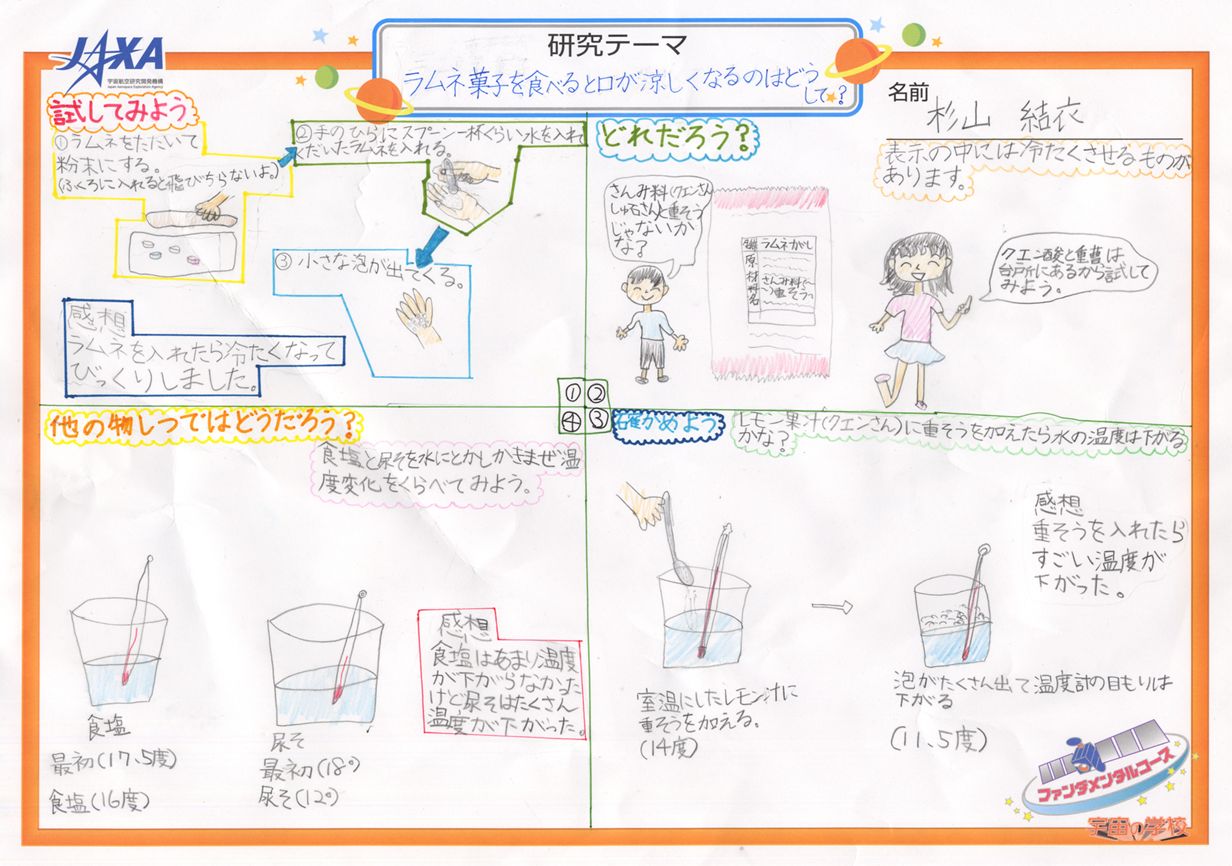 JAXA
宇宙航空研究開発機構
Japan Aerospace Exploration Agency
研究テーマ
ラムネ菓子を食べると口が涼しくなるのはどう
して?
名前
杉山 結衣
試してみよう
①ラムネをたたいて
粉末にする。
(ふくろに入れると飛びちらないよ。)
②手のひらにスプーン一杯くらい水を入れ
くだいたラムネを入れる。
③小さな泡が出てくる。
感想
ラムネを入れたら冷たくなって
びっくりしました。
どれだろう?
表示の中には冷たくさせるものが
あります。
さんみ料(クエンさん
しゅ石さん)と重そう
じゃないか
な?
ラムネがし
原材料名
さんみ料
重そう
クエン酸と重曹は
台所にあるから試して
みよう。
① ②
④ ③
確かめよう
レモン果汁(クエンさん)に重そうを加えたら水の温度は下がる
かな?
感想
重そうを入れたら
すごい温度が
下がった。
室温にしたレモン汁に
重そうを加える。
(14度)
泡がたくさん出て温度計の目もりは
下がる
(11、5度)
他の物しつではどうだろう?
食塩と尿そを水にとかしかきまぜ温
度変化をくらべてみよう。
食塩
最初(17、5度)
食塩(16度)
尿そ
最初(18°)
尿そ(12°)
感想
食塩はあまり温度
が下がらなかった
けど尿そはたくさん
温度が下がった。
ファンダメンタルコース
宇宙の学校